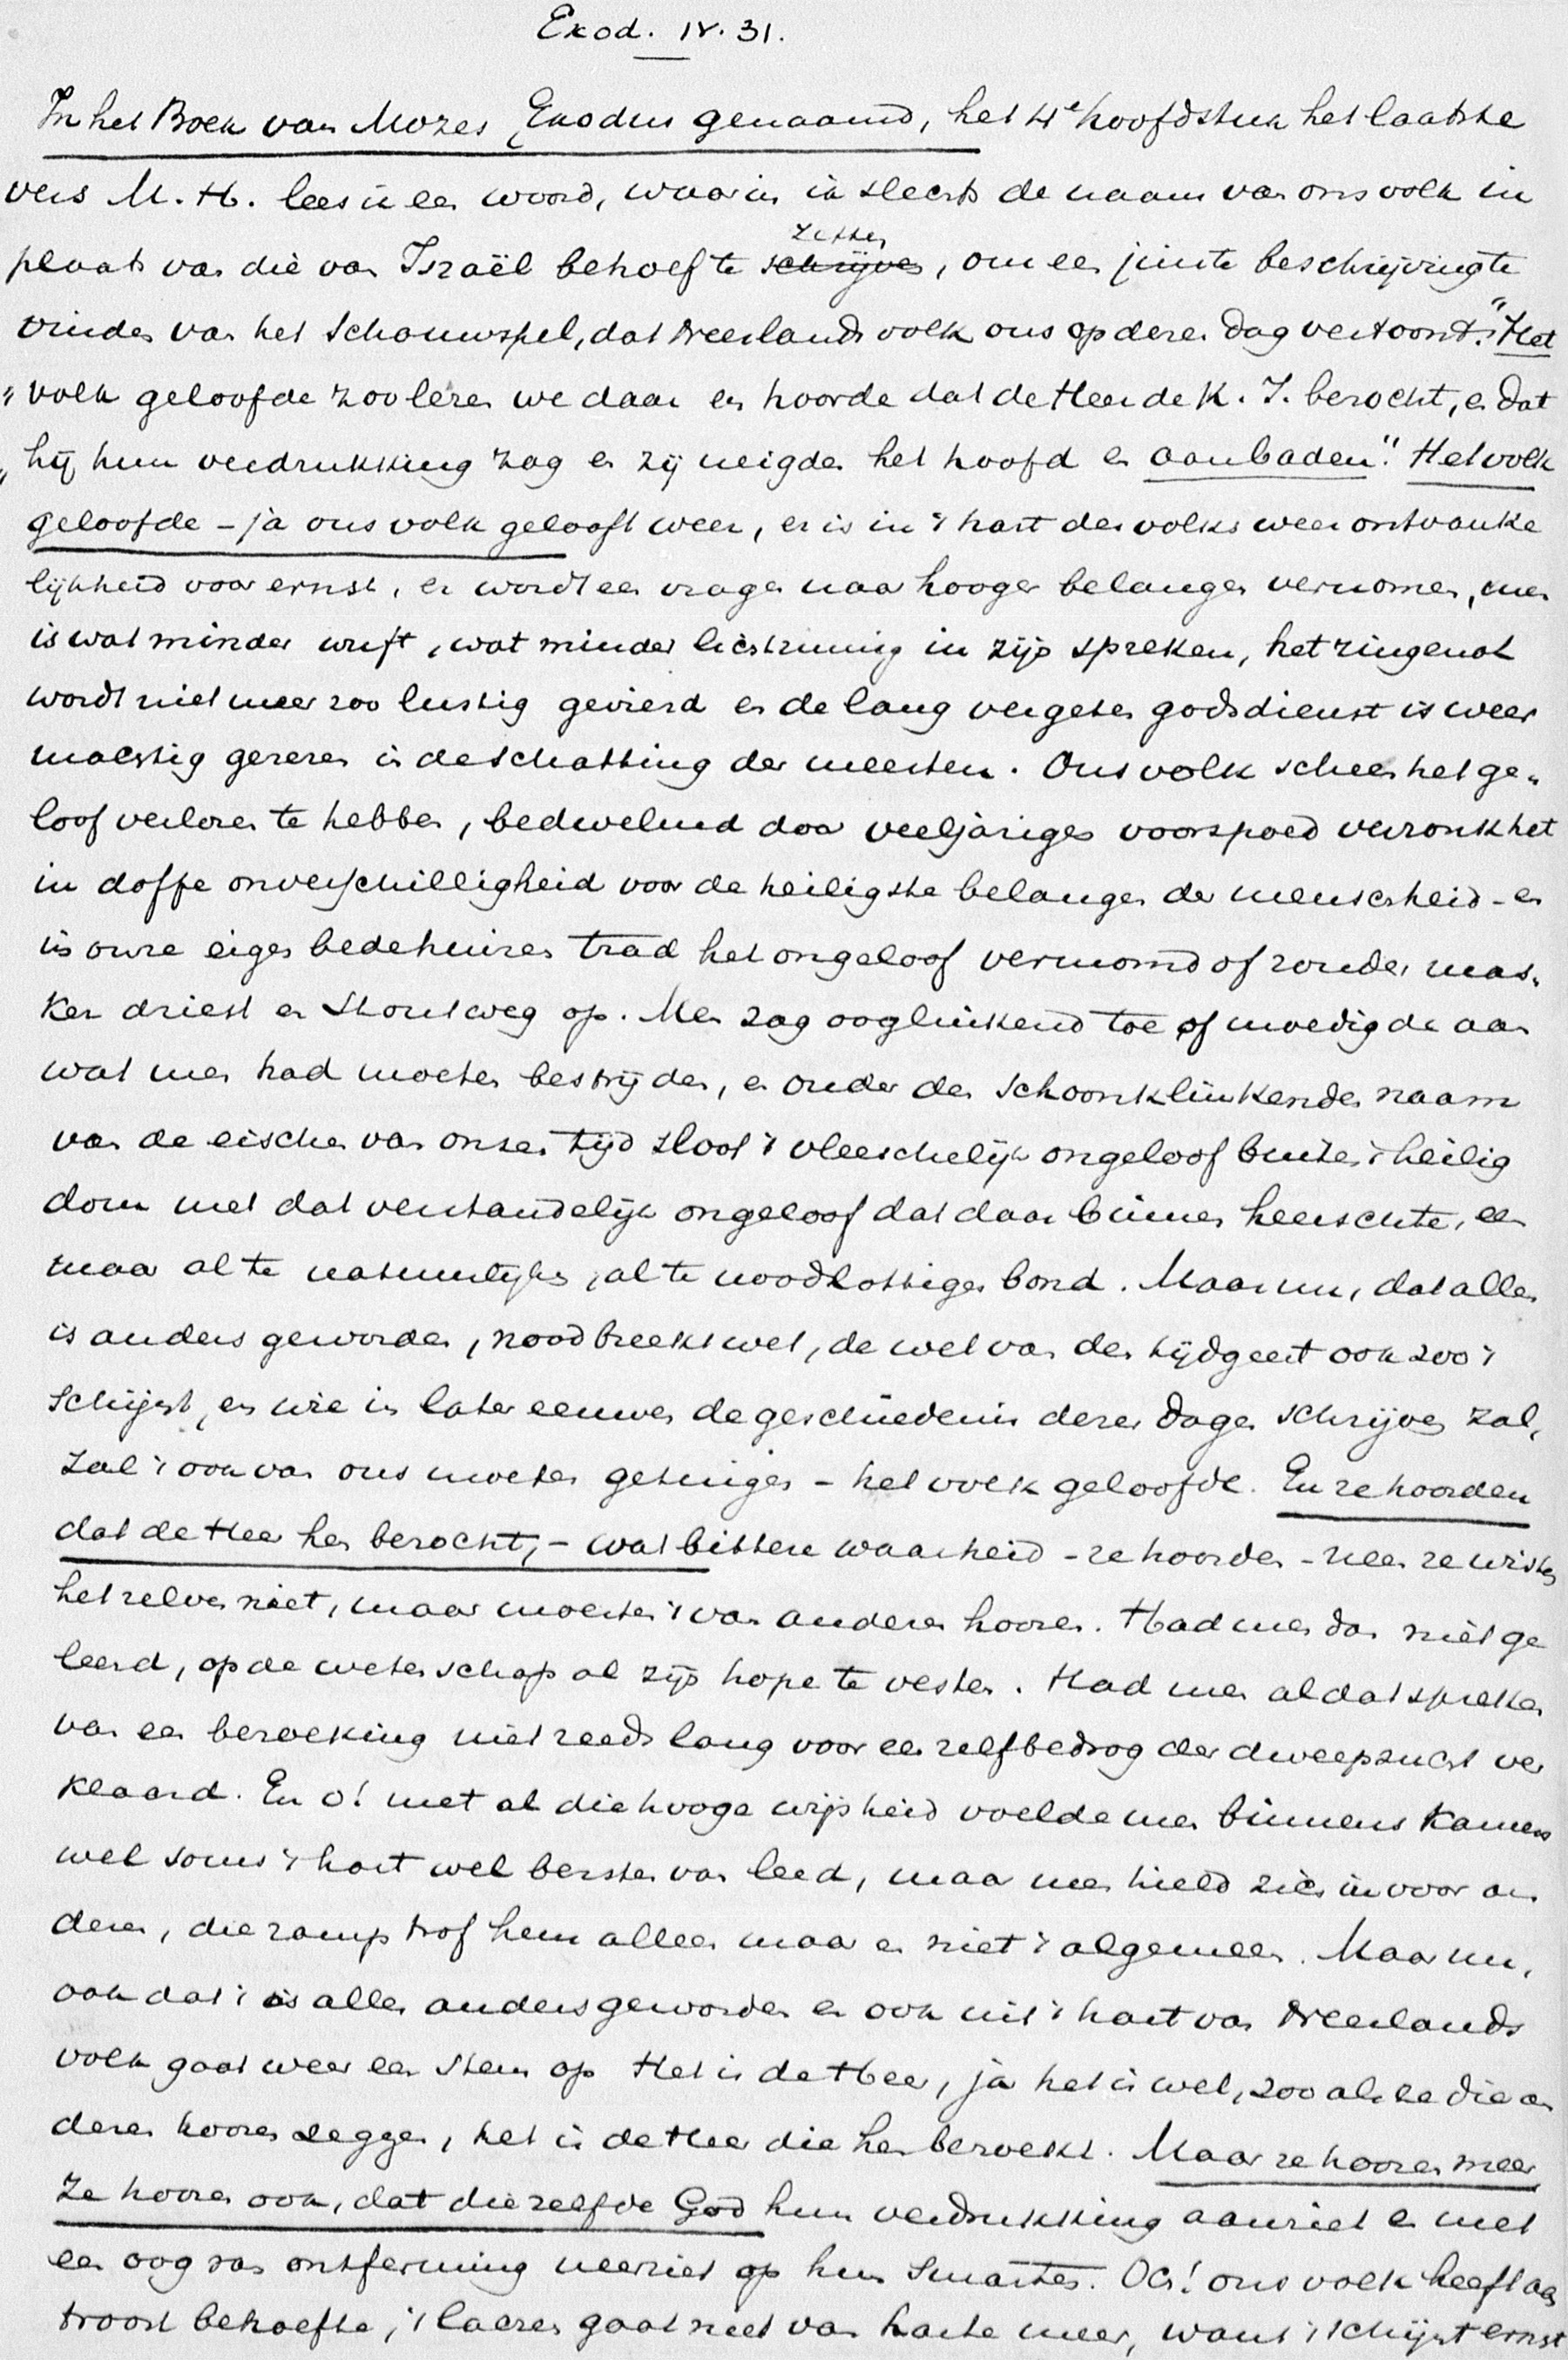 Exod. IV. 31.
In het Boek van Mozes, Exodus genaamd, het 4e hoofdstuk het laatste
vers M. H. lees ik een woord, waarin ik slechts de naam van ons volk in
plaats van die van Israël behoef te schrijven zetten, om een juiste beschrijving te
vinden van het schouwspel, dat Neerlands volk ons op dezen dag vertoont. "Het
"volk geloofde zoo lezen we daar en hoorde dat de Heer de K. I. bezocht, en dat
"hij hun verdrukking zag en zij neigden het hoofd en aanbaden". Het volk
geloofde – ja ons volk gelooft weer, er is in 't hart des volks weer ontvanke
lijkheid voor ernst, er wordt een vragen naar hooger belangen vernomen, men
is wat minder wuft, wat minder lichtzinnig in zijn spreken, het zingenot
wordt niet meer zoo lustig gevierd en de lang vergeten godsdienst is weer
machtig gerezen in de schatting der meesten. Ons volk scheen het ge-
loof verloren te hebben, bedwelmd door veeljarigen voorspoed verzonk het
in doffe onverschilligheid voor de heiligste belangen der menscheid – en
in onze eigen bedehuizen trad het ongeloof vermomd of zonder mas-
ker driest en stoutweg op. Men zag oogluikend toe of moedigde aan
wat men had moeten bestrijden, en onder den schoonklinkenden naam
van de eischen van onzen tijd sloot 't vleeschelijk ongeloof buiten 't heilig
dom met dat verstandelijk ongeloof dat daar binnen heerschte, een
maar al te natuurlijken, al te noodlottigen bond. Maar nu, dat alles
is anders geworden, nood breekt wet, de wet van den tijdgeest ook zoo 't
schijnt, en wie in later eeuwen de geschiedenis dezer dagen schrijven zal,
zal 't ook van ons moeten getuigen – het volk geloofde. En ze hoorden
dat de Heer hen bezocht, – wat bittere waarheid – ze hoorden – neen ze wisten
het zelven niet, maar moesten 't van anderen hooren. Had men dan niet ge
leerd, op de wetenschap al zijn hope te vesten. Had men al dat spreken
van een bezoeking niet reeds lang voor een zelfbedrog der dweepzucht ver
klaard. En o! met al die hooge wijsheid voelde men binnens kamers
wel soms 't hart wel bersten van leed, maar men hield zich in voor an
deren, die ramp trof hem alleen maar en niet 't algemeen. Maar nu,
ook dat is alles anders geworden en ook uit 't hart van Neerlands
volk gaat weer een stem op Het is de Heer, ja het is wel, zoo als ze die an
deren hooren zeggen, het is de Heer die hen bezoekt. Maar ze hooren meer
Ze hooren ook, dat diezelfde God hun verdrukking aanziet en met
een oog van ontferming neerziet op hun smarten. Och! ons volk heeft aan
troost behoefte, 't lachen gaat niet van harte meer, want 't schijnt ernst